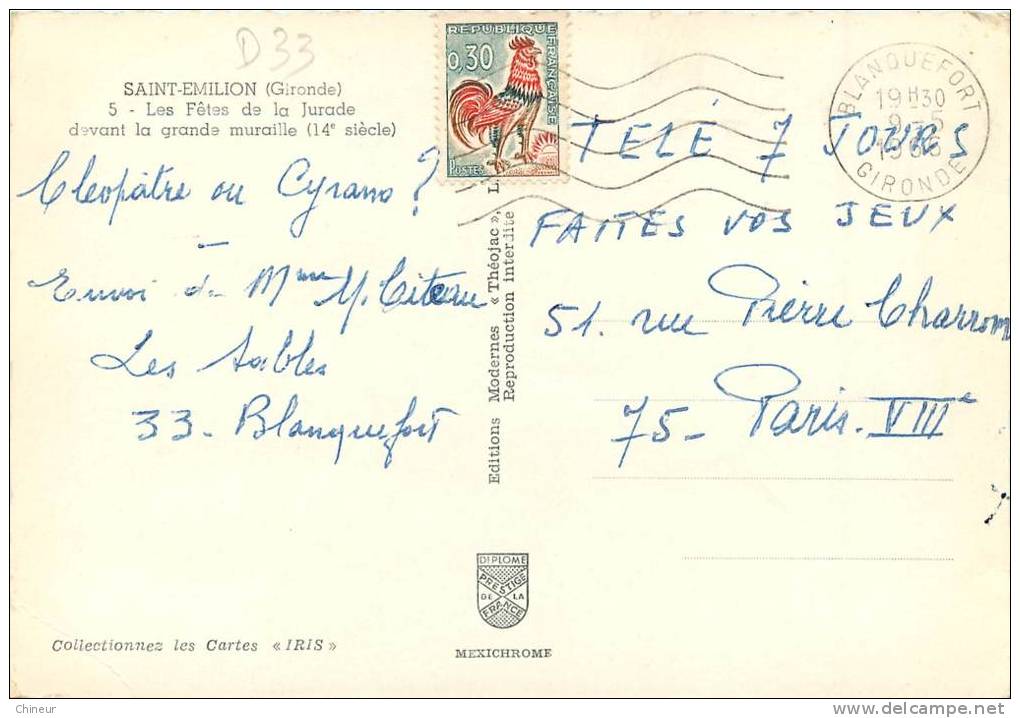 D 33
SAINT-EMILION (Gironde)
5 - Les Fêtes de la Jurade
devant la grande muraille (14e siècle)
Cléopâtre ou Cyrano ?
Envoi de Mme Y. Citeau
Les Sables
33 - Blanquefort
REPUBLIQUE FRANÇAISE
0,30
POSTES
BLANQUEFORT
19H30
9-5
1966
GIRONDE
TELÉ 7 JOURS
FAITES VOS JEUX
51. rue Pierre Charron
75 - Paris. VIIIe
Editions Modernes « Théojac »,
Reproduction interdite
DIPLOME
PRESTIGE
DE LA
FRANCE
MEXICHROME
Collectionnez les Cartes « IRIS »
Chineur
www.delcampe.net